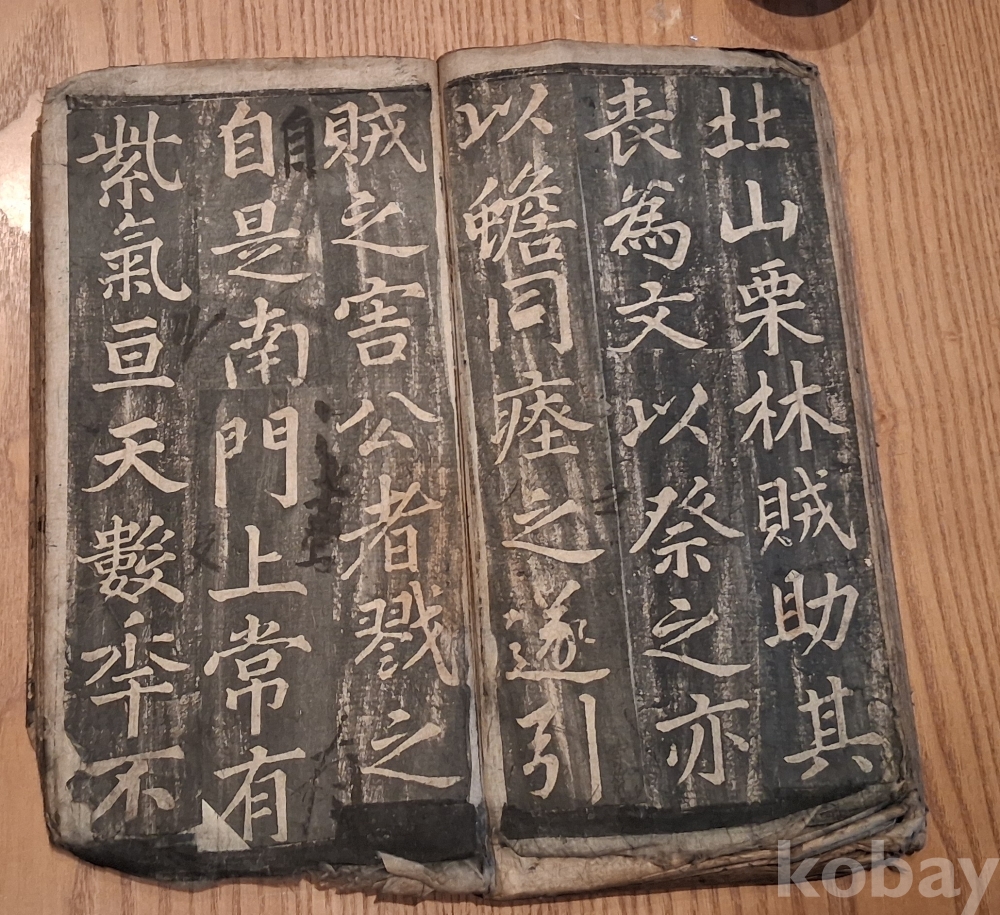 北山栗林賊助其
喪為文以祭之亦
以蟾同瘞之遂引
賊之害公者戮之
自
自是南門上常有
紫氣亘天數秊不
kobay